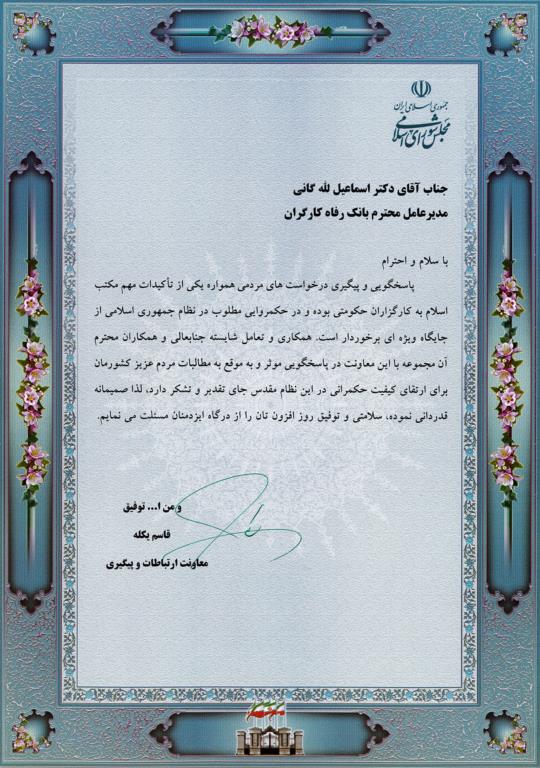 جمهوری اسلامی ایران
مجلس شورای اسلامی
جناب آقای دکتر اسماعیل لله گانی
مدیرعامل محترم بانک رفاه کارگران
با سلام و احترام
پاسخگویی و پیگیری درخواست های مردمی همواره یکی از تأکیدات مهم مکتب
اسلام به کارگزاران حکومتی بوده و در حکمروایی مطلوب در نظام جمهوری اسلامی از
جایگاه ویژه ای برخوردار است. همکاری و تعامل شایسته جنابعالی و همکاران محترم
آن مجموعه با این معاونت در پاسخگویی موثر و به موقع به مطالبات مردم عزیز کشورمان
برای ارتقای کیفیت حکمرانی در این نظام مقدس جای تقدیر و تشکر دارد، لذا صمیمانه
قدردانی نموده، سلامتی و توفیق روز افزون تان را از درگاه ایزدمنان مسئلت می نمایم.
و من ا... توفیق
قاسم یکله
معاونت ارتباطات و پیگیری